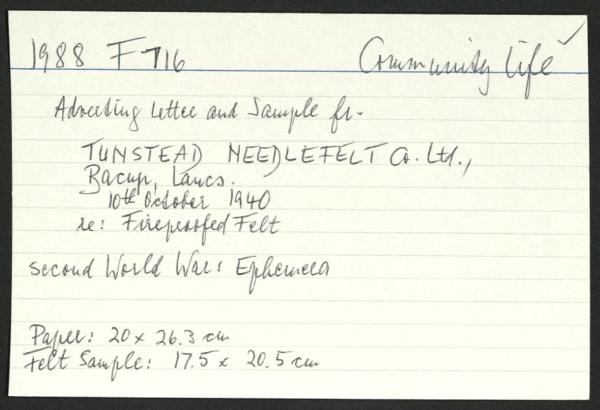 1988 F716 Community Life ✓
Advecting Letter and Sample fr.
TUNSTEAD NEEDLEFELT Co. Ltd.,
Bacup, Lancs.
10th October 1940
re: Fireproofed Felt
second World War: Ephemera
Paper: 20 x 26.3 cm
Felt Sample: 17.5 x 20.5 cm